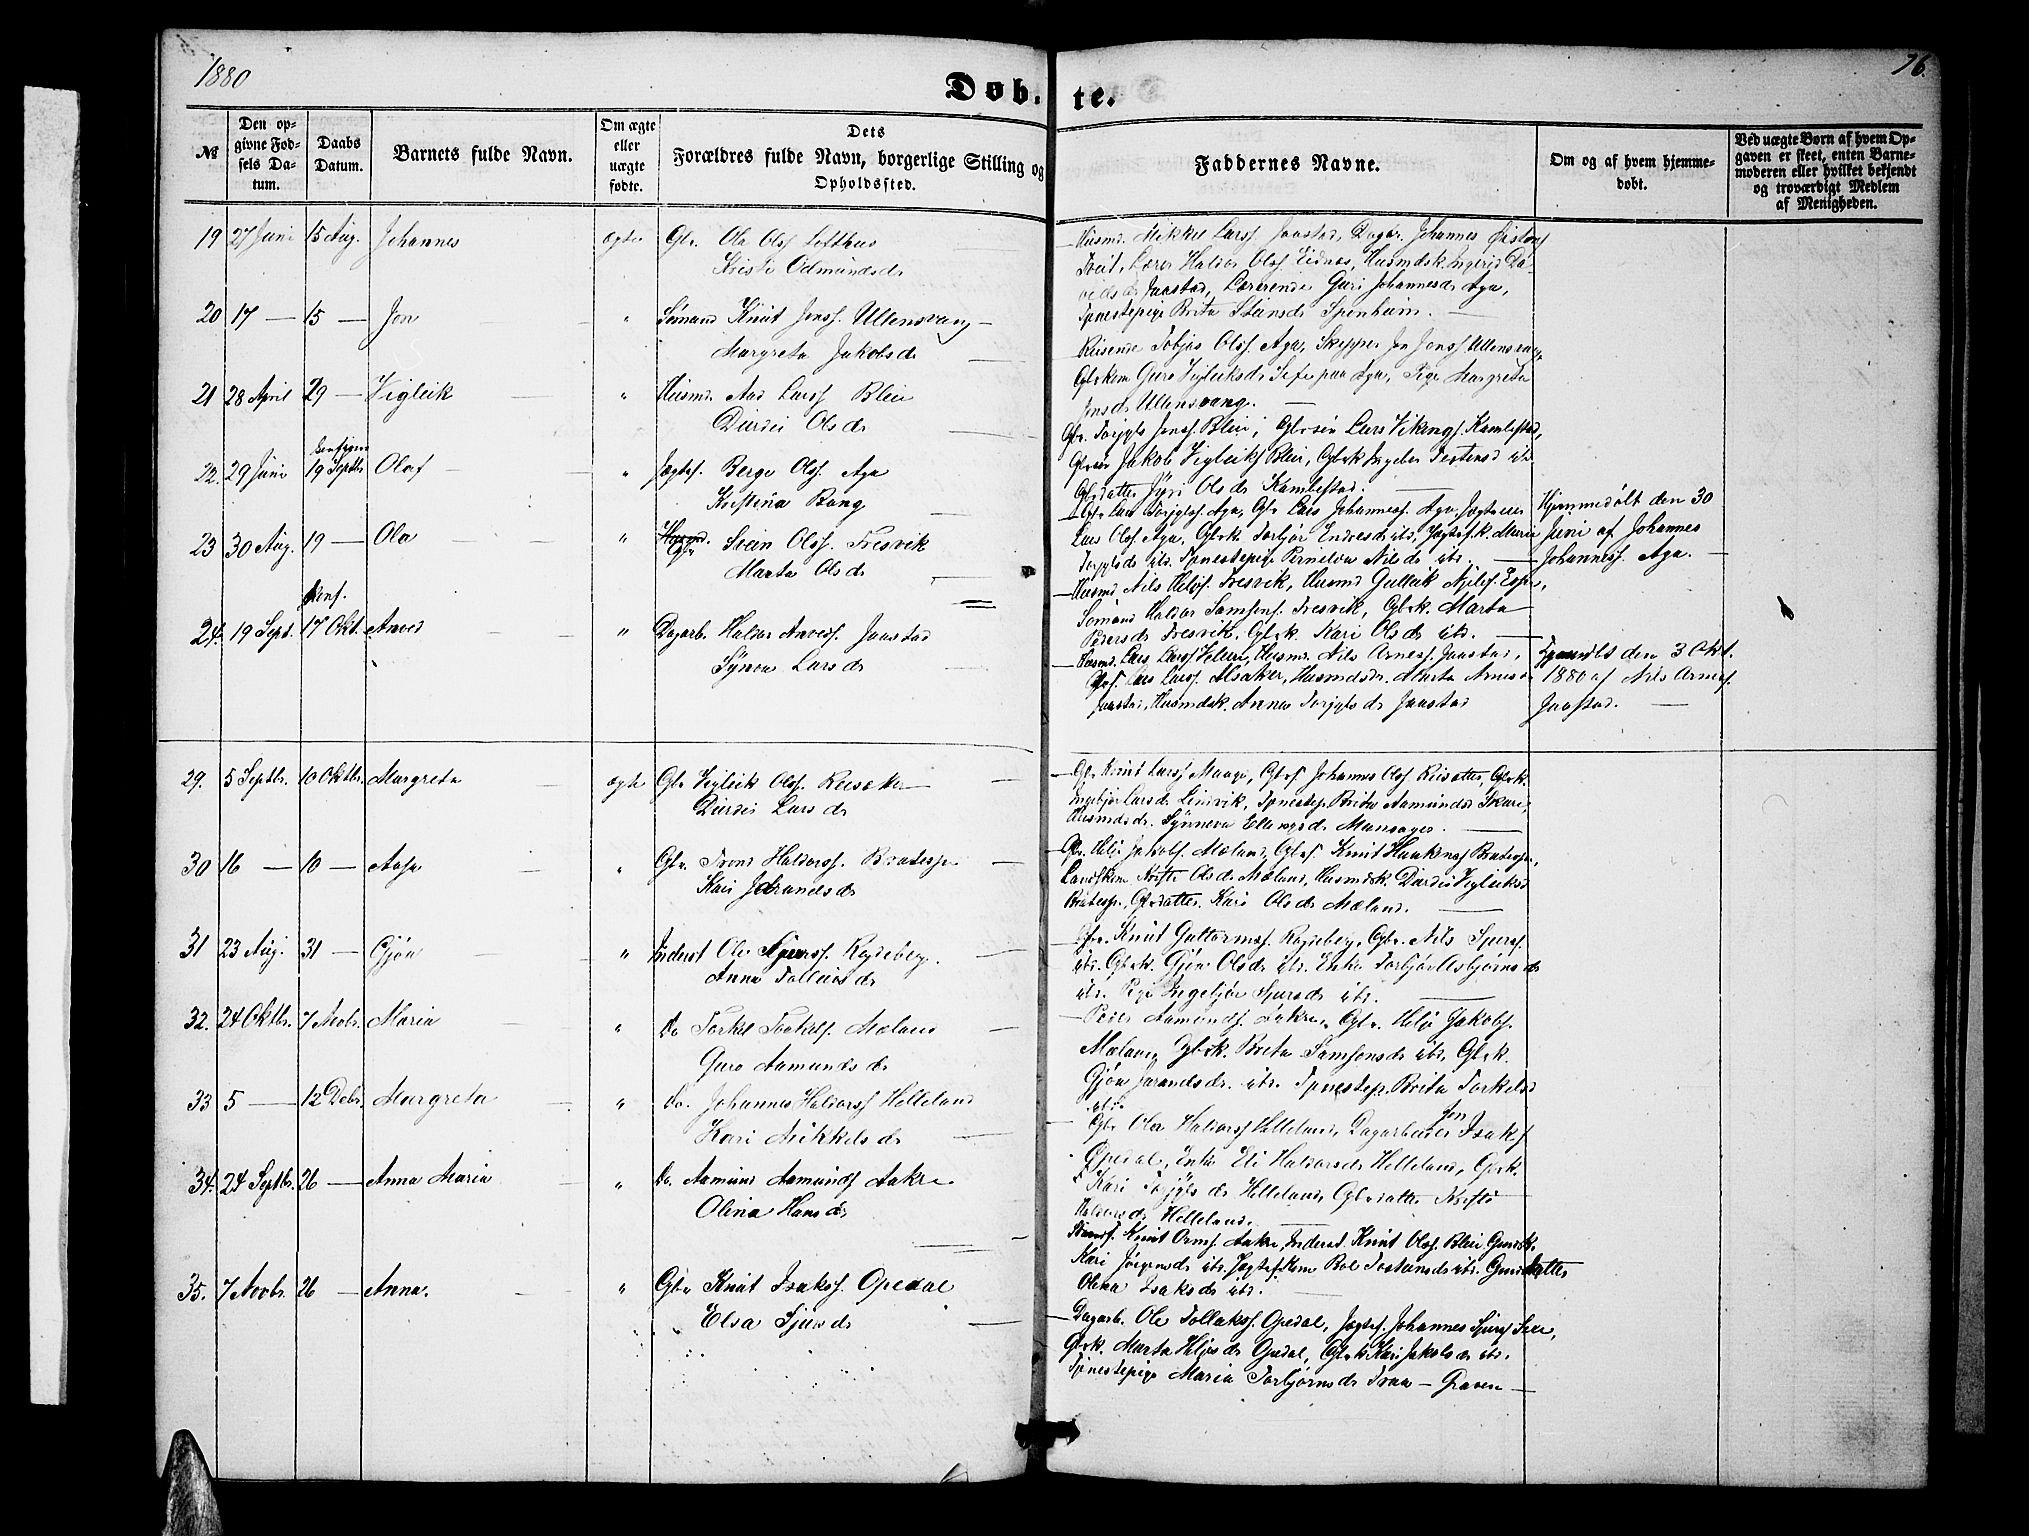 1880
76.
Døb. te.
№
Den op-
givne Fød-
sels Da-
tum.
Daabs
Datum.
Barnets fulde Navn.
Om ægte
eller
uægte
fødte.
Dets
Forældres fulde Navn, borgerlige Stilling og
Opholdssted.
Faddernes Navne.
Om og af hvem hjemme-
døbt.
Ved uægte Børn af hvem Op-
gaven er skeet, enten Barne-
moderen eller hvilket bekjendt
og troværdigt Medlem
af Menigheden.
19 27 Juni 15 Aug. Johannes ægte Gbr. Ola Olss Lofthus
Kristi Odmundsdr
Husmd. Mikkel Larss Jaastad, Dagar. Johannes
Tveit, Lærer Haldor Olss. Eidnes, Husmdsk. Ingerid Da-
vidsdr Jaastad, Lærerinde Guri Johannesdr Aga,
Tjenestepige Brita Steinsdr Spenheim. —
20 17 — 15 — Jon " Sømand Knut Jonss. Ullensvang —
Margreta Jakobsdr —
Reisende Tobjas Olss. Aga, Skipper Jon Jonss. Ullensvang,
Gbrkone Guro Vigleiksdr Aga, Pige Margreta
Jonsdr Ullensvang. —
21 28 April 29 — Vigleik — " Husmd. Aad Larss Bleie
Durdei Olsdr —
Gbr. Torjyls Jonss. Bleie, Gbrsøn Lars Vikings. Kambestad,
Gbrsøn Jakob Vigleiks Bleie, Gbrk Ingebor Tostensd ibd.
Gbrdatter Jyri Olsdr Kambestad. —
22. 29 Juni 19 Septbr. Olaf — — " Jægtef. Berge Olss. Aga
Kristina Bang —
Gbr Lars Torjylss. Aga, Gbr Lars Johanness. Aga, Jægteeier
Lars Olss Aga, Gbrk. Torbjør Endresdr ibd, Jægtef.k. Maria
Torjylsdr ibd. Tjenestepige Pernilla Nilsdr ibd. —
Hjemmedøbt den 30
Juni af Johannes
Johanness. Aga. —
23 30 Aug. 19 — Ola — — " Husmd.
Gbr Svein Olss. Tresvik
Marta Olsdr —
Husmd Nils Heljes. Tresvik, Husmd Gulleik Espe,
Sømand Haldor Samsons. Tresvik, Gbrk. Marta
Pedersdr Tresvik, Gbrk. Kari Olsdr ibd. —
24. 19 Sept. 17 Okt. Anved — — " Dagarb. Haldor Anveds. Jaastad
Synva Larsdr —
Husmd. Lars Larss Velure, Husmd. Nils Arness. Jaastad,
Lars Larss. Alsaker, Husmdsdr. Marta Arnesdr
Jaastad, Husmdsk. Anna Torjylsdr Jaastad
den 3 Okt.
1880 af Nils Arness.
Jaastad. —
29. 5 Septbr. 10 Oktbr. Margreta — ægte Gbr Vigleik Olss. —
Durdei Larsdr
Gbr Knut Larss Maage, Gbrs. Johannes Olss Reisæter, Gbrk.
Ingebjør Larsdr Lindvik, Tjenestep. Brita Aamundsdr Skare,
Husmdsdr. Synneva Ellingsdr Mannsager. —
30 16 — 10 — Aasa — " Gbr. Trond Haldorss. Bratespe —
Kari Jorandsdr
Gbr. Helje Jakobs. Mæland, Gbrs. Knut Haakenss Bratespe,
Kristi Olsdr Mæland, Husmdsk. Durdei Vigleiksd
Bratespe, Gbrdatter Kari Olsdr Mæland. —
31 23 Aug. 31 — Gjøa — — " Inderst Ole Sjurss. Rogdeberg. —
Anna Tolleivsdr
Gbr. Knut Guttormss. Rogdeberg, Gbr. Nils Sjurss.
ibd. Gbrk. Gjøa Olsdr ibd. Enke Torbjør Asbjørnsdr
ibd. Pige Ingebjør Sjursdr ibd. —
32. 24 Oktbr. 7 Novbr. Maria — " Do Torkel Torkelss. Mæland —
Guro Aamundsdr
Peder Aamunds. Aakre, Gbr. Helje Jakobs.
Mæland, Gbrk. Brita Samsonsdr ibd, Gbrk.
Gjøa Jorandsdr. ibd. Tjenestep. Brita Torkelsd
ibd.
33 5 — 12 Debr. Margreta — " Do. Johannes Haldorss Helleland
Kari Mikkelsdr —
Gbr Ola Haldorss Helleland, Dagarbeider Jon Isaks
Opedal, Enke Eli Haldorsdr Helleland, Gbrk.
Kari Torjylsdr Helleland, Gbrdatter Kristi
Haldorsdr Helleland. —
34. 24 Septbr. 26 — Anna Maria — " Do. Aamund Aamunds Aakre
Olina Hansdr —
Knut Orms. Aakre, Inderst Knut Olss. Bleie, Gbrk.
Kari Jørgensdr ibd. Jægtef.kone Boe Tostensdr ibd. Gbrdatter
Olina Isaksdr ibd. —
35. 7 Novbr. 26 — Anna. — " Gbr Knut Isakss. Opedal
Elsa Sjursdr —
Dagarb. Ole Tollakss. Opedal, Jægtef. Johannes Sjurss,
Gbrk. Marta Heljesdr Opedal, Gbrk Kari Jakobsdr ibd.
Tjenestepige Maria Torbjørnsdr Traa — Graven —